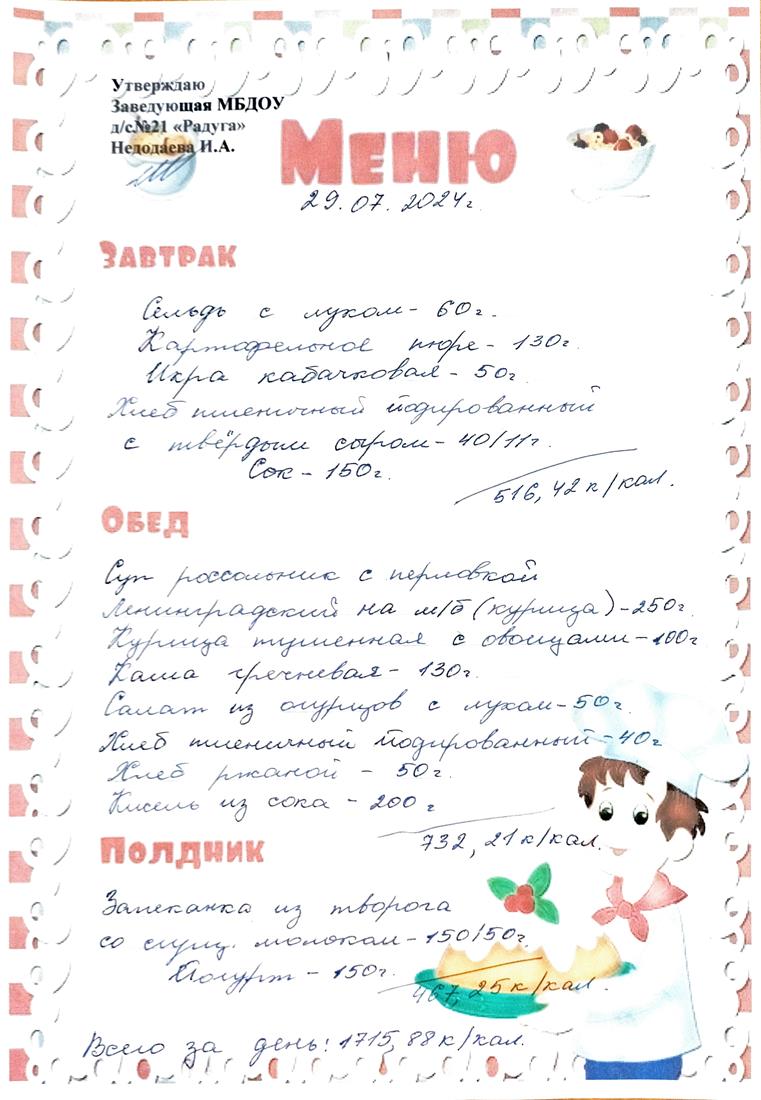 Утверждаю
Заведующая МБДОУ
д/с№21 «Радуга»
Недодаева И.А.
Меню
29.07.2024г.
Завтрак
Сельдь с луком- 60г.
Картофельное пюре- 130г.
Икра кабачковая- 50г.
Хлеб пшеничный йодированный
с твёрдым сыром- 40/11г.
Сок- 150г.
516,42 к/кал.
Обед
Суп россольник с перловкой
Ленинградский на м/б (курица)-250г.
Курица тушенная с овощами-100г
Каша гречневая- 130г.
Салат из огурцов с луком-50г.
Хлеб пшеничный йодированный-40г
Хлеб ржаной - 50г.
Кисель из сока - 200г
732,21 к/кал.
Полдник
Запеканка из творога
со сгущ. молоком-150/50г.
Йогурт - 150г.
467,25 к/кал.
Всего за день: 1715,88 к/кал.